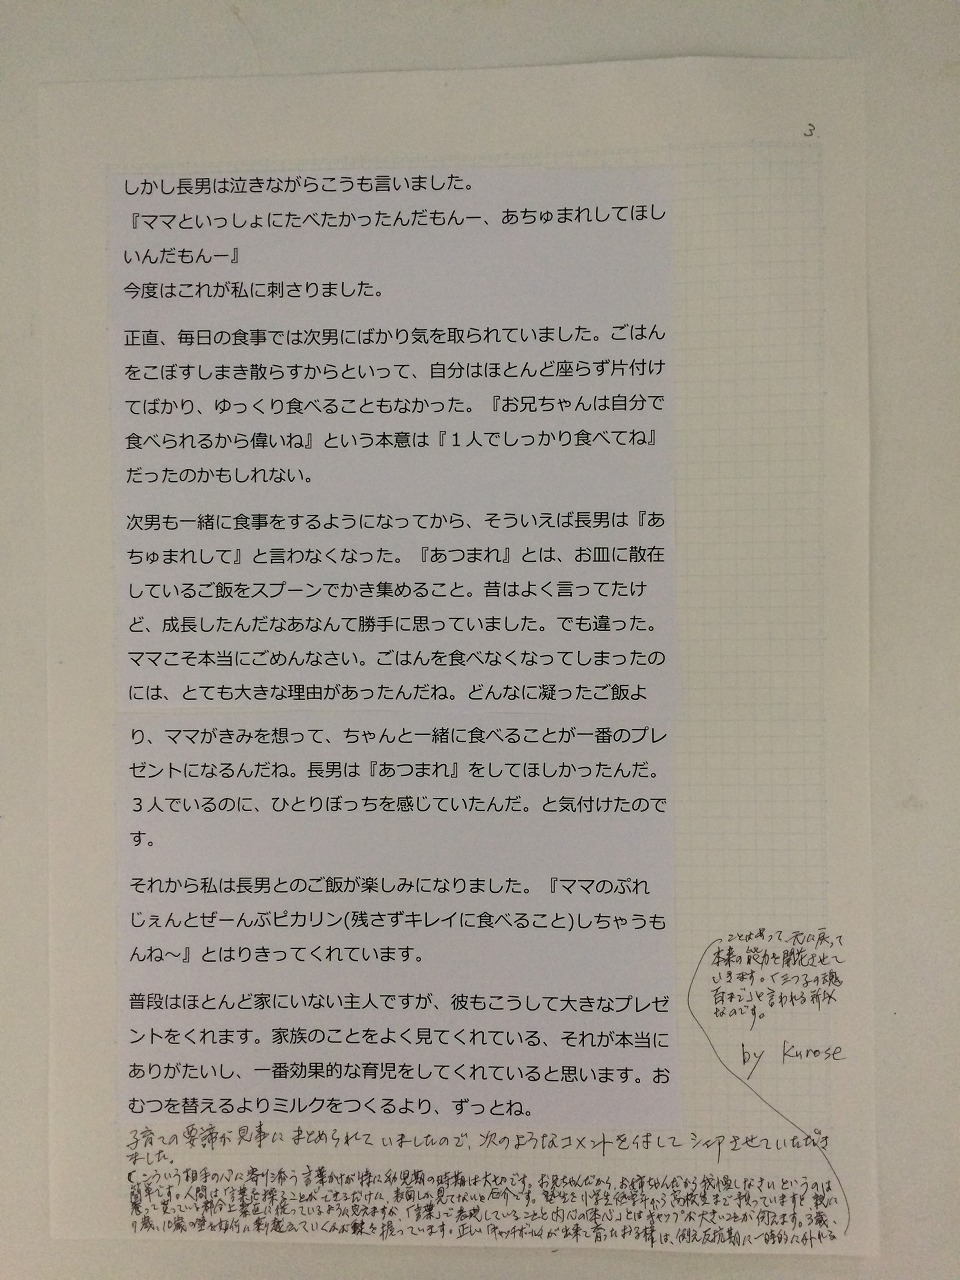 3
しかし長男は泣きながらこうも言いました。
『ママといっしょにたべたかったんだもんー、あちゅまれしてほし
いんだもんー』
今度はこれが私に刺さりました。
正直、毎日の食事では次男にばかり気を取られていました。ごはん
をこぼすしまき散らすからといって、自分はほとんど座らず片付け
てばかり、ゆっくり食べることもなかった。『お兄ちゃんは自分で
食べられるから偉いね』という本意は『１人でしっかり食べてね』
だったのかもしれない。
次男も一緒に食事をするようになってから、そういえば長男は『あ
ちゅまれして』と言わなくなった。『あつまれ』とは、お皿に散在
しているご飯をスプーンでかき集めること。昔はよく言ってたけ
ど、成長したんだなあなんて勝手に思っていました。でも違った。
ママこそ本当にごめんなさい。ごはんを食べなくなってしまったの
には、とても大きな理由があったんだね。どんなに凝ったご飯よ
り、ママがきみを想って、ちゃんと一緒に食べることが一番のプレ
ゼントになるんだね。長男は『あつまれ』をしてほしかったんだ。
３人でいるのに、ひとりぼっちを感じていたんだ。と気付けたので
す。
それから私は長男とのご飯が楽しみになりました。『ママのぷれ
じぇんとぜーんぶピカリン(残さずキレイに食べること)しちゃうも
んね〜』とはりきってくれています。
普段はほとんど家にいない主人ですが、彼もこうして大きなプレゼ
ントをくれます。家族のことをよく見てくれている、それが本当に
ありがたいし、一番効果的な育児をしてくれていると思います。お
むつを替えるよりミルクをつくるより、ずっとね。
子育ての要諦が見事にまとめられていましたので、次のようなコメントを付してシェアさせていただき
ました。
「こういう相手の心に寄り添う言葉かけが特に幼児期の時期は大切です。お兄ちゃんだから、お姉ちゃんだから我慢しなさいというのは
簡単です。人間は「言葉を操ることができるだけに、表面しか見てないと厄介です。塾生を小学生低学年から高校生まで預っていますと、親に
従っているように見えますが、「言葉」で表現していることと内心の「本心」とはギャップが大きいことが伺えます。3歳、
を如何に乗り越えていくかが鍵を握っています。正しいキャッチボールが出来て育ったお子様は、例え反抗期に一時的に外れる
ことはあって、元に戻って
本来の能力を開花させて
いきます。「三つ子の魂
百まで」と言われる所以
なのです。
by Kurose